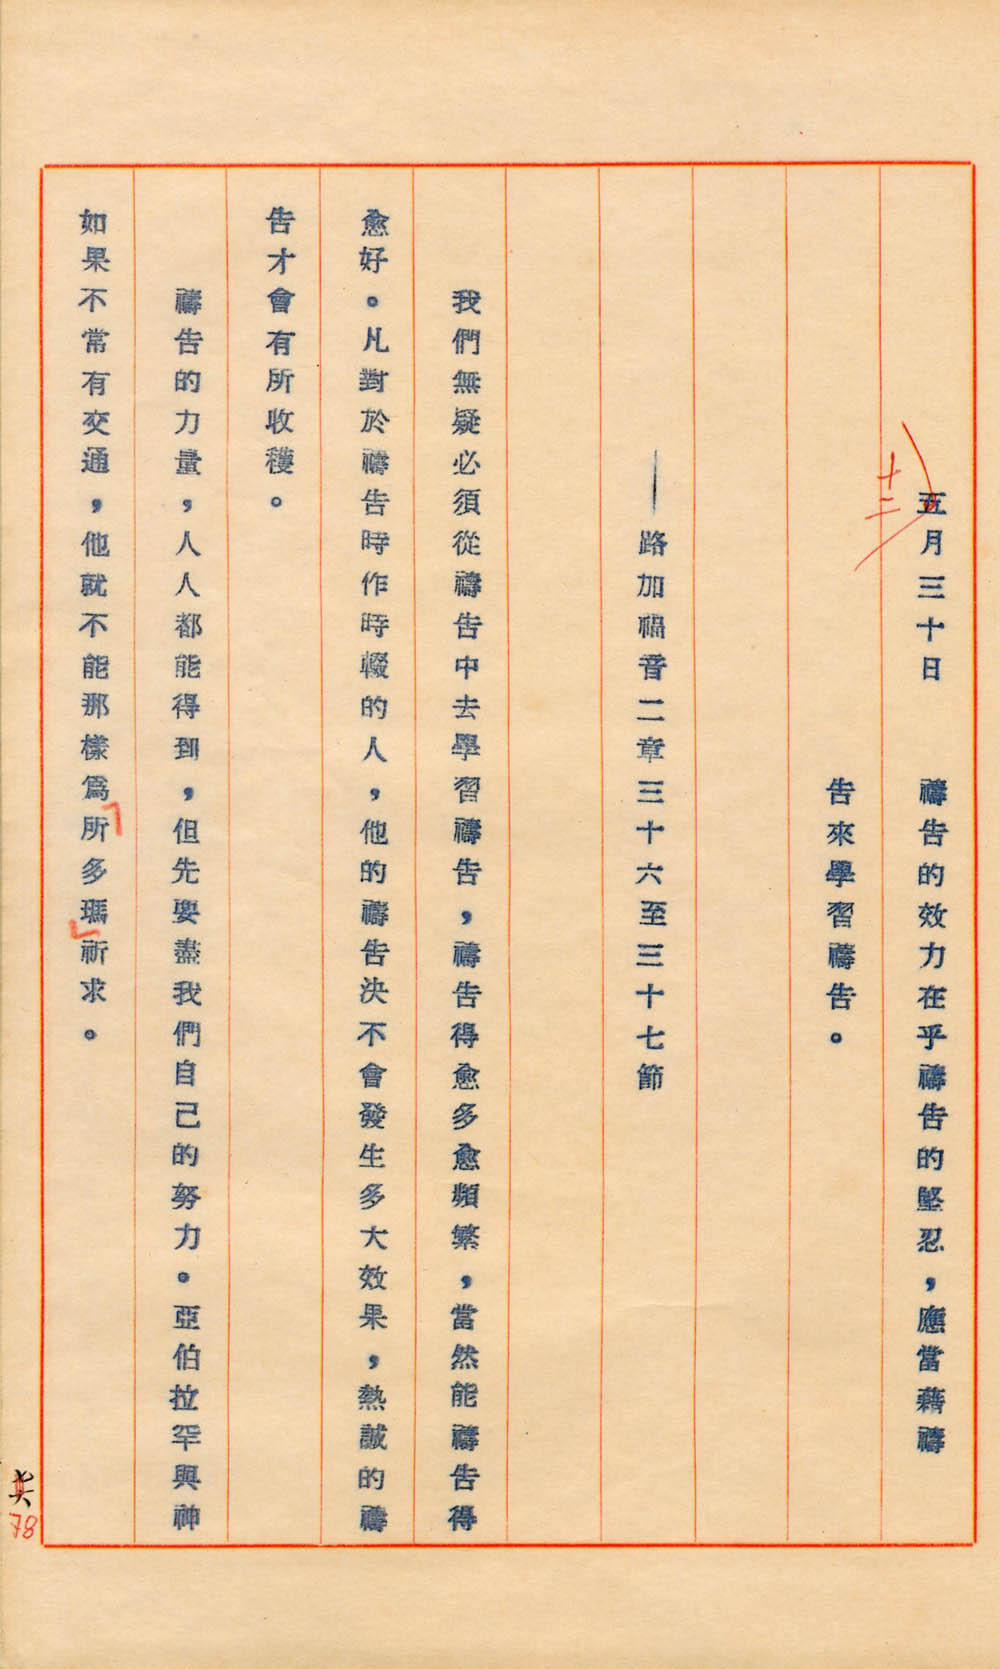 五月三十日 禱告的效力在乎禱告的堅忍，應當藉禱
告來學習禱告。
十二
——路加福音二章三十六至三十七節
我們無疑必須從禱告中去學習禱告，禱告得愈多愈頻繁，當然能禱告得
愈好。凡對於禱告時作時輟的人，他的禱告決不會發生多大效果，熱誠的禱
告才會有所收穫。
禱告的力量，人人都能得到，但先要盡我們自己的努力。亞伯拉罕與神
如果不常有交通，他就不能那樣為所多瑪祈求。
78